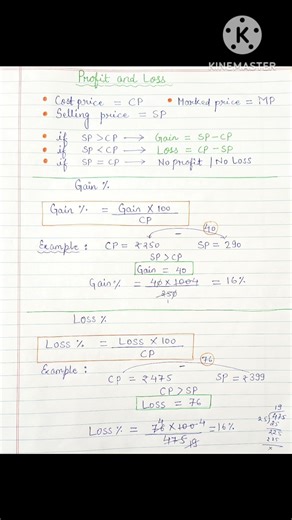 KINEMASTER
Profit and Loss
• Cost price = CP • Marked price = MP
• Selling price = SP
• if SP > CP → Gain = SP - CP
• if SP < CP → Loss = CP - SP
• if SP = CP → No profit / No Loss
Gain %
Gain % = Gain × 100 / CP
40
Example : CP = ₹250 - SP = 290
SP > CP
Gain = 40
Gain % = 40 × 100 4 / 250 1 = 16%
Loss %
Loss % = Loss × 100 / CP
76
Example : -
CP = ₹475 SP = ₹399
CP > SP
Loss = 76
Loss % = 76 4 × 100 4 / 475 19 = 16%
19
25 475
25
225
225
x